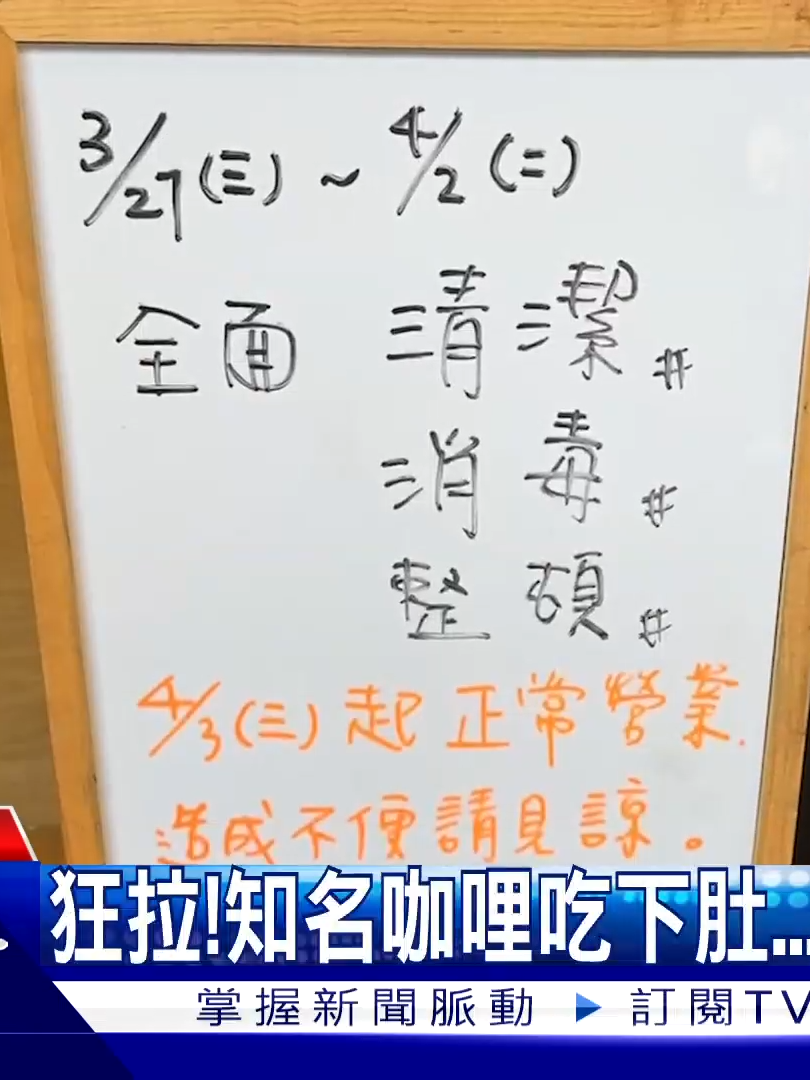 3/27(三)~4/2(二)
全面 清潔#
消毒#
整頓#
4/3(三)起正常營業.
造成不便請見諒。
狂拉!知名咖哩吃下肚...
掌握新聞脈動 ▶ 訂閱TV